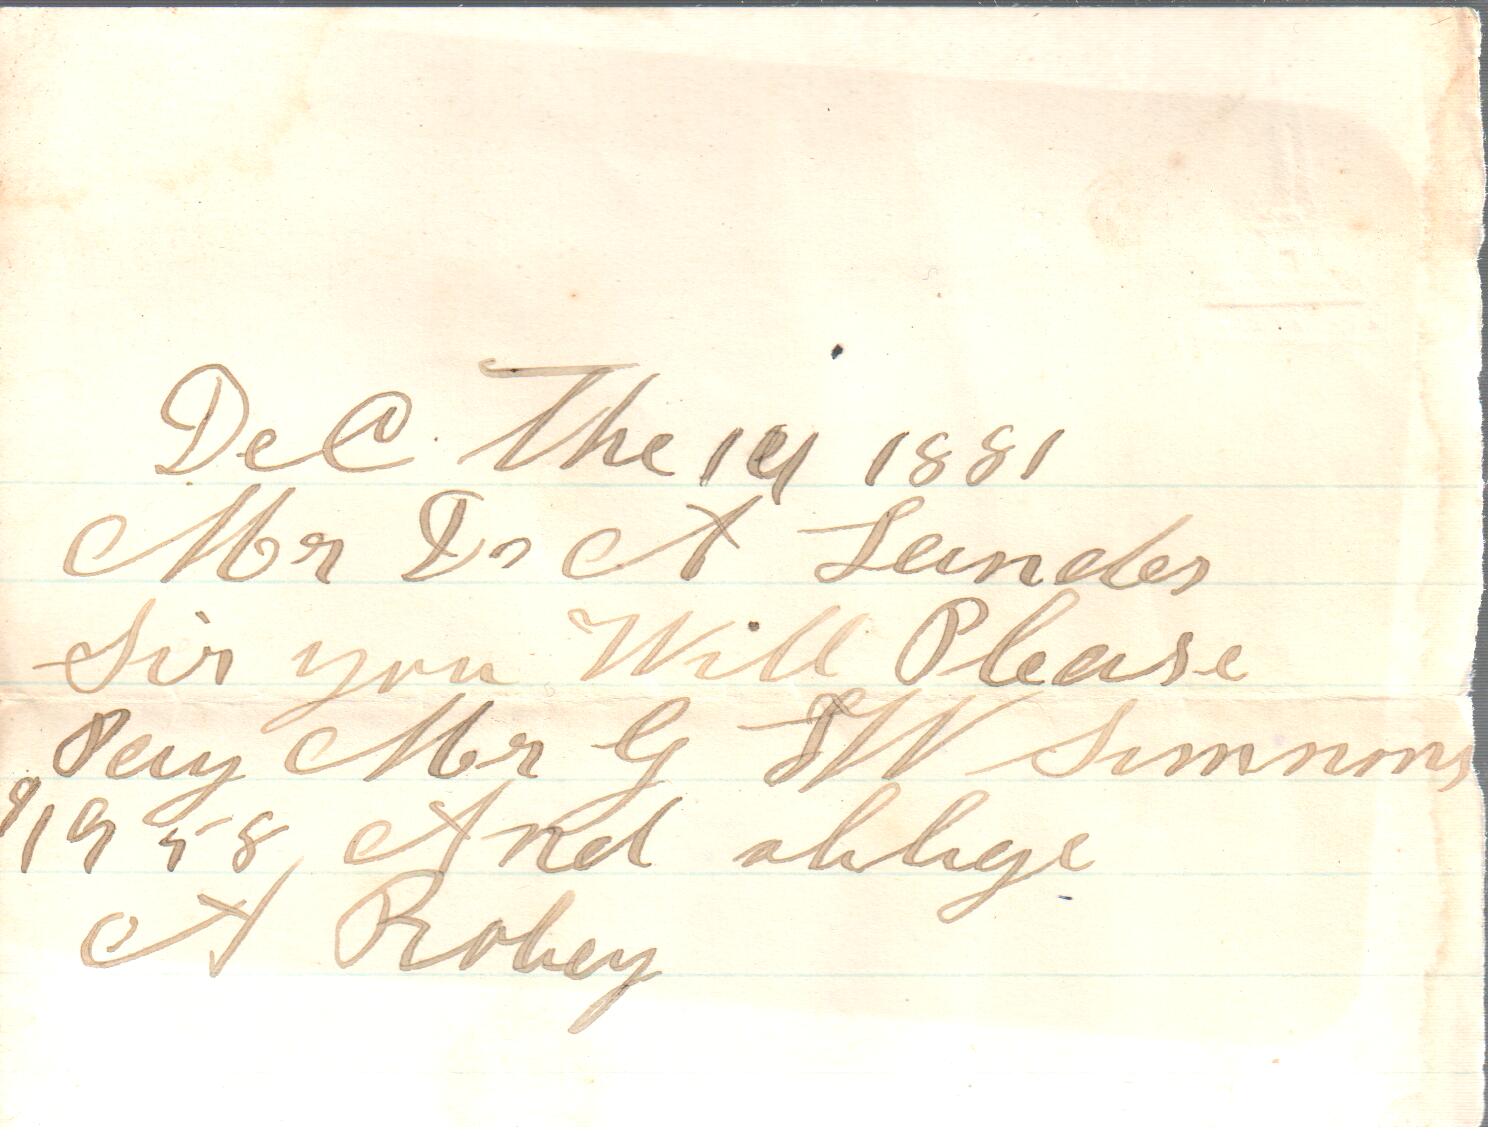 DeC The 14 1881
Mr Dr A Sanders
Sir you Will Please
Pay Mr G W Simmons
$19 58 And oblige
A Robey